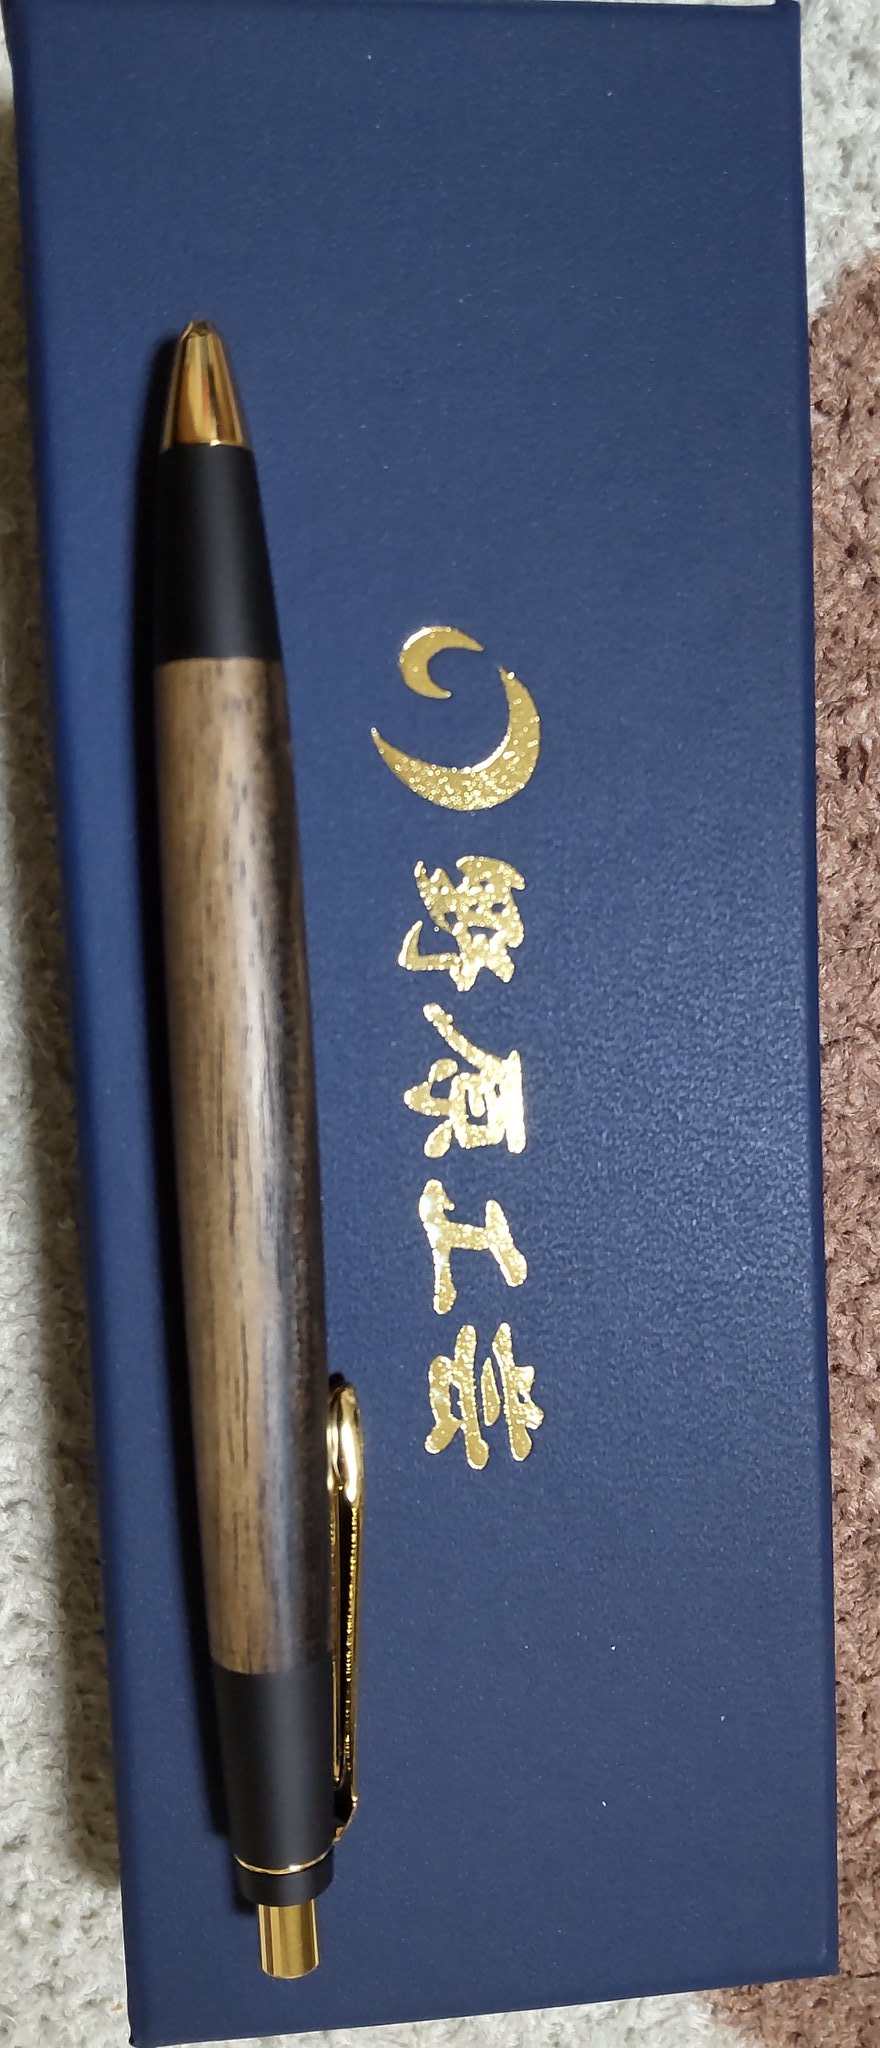 野原工芸